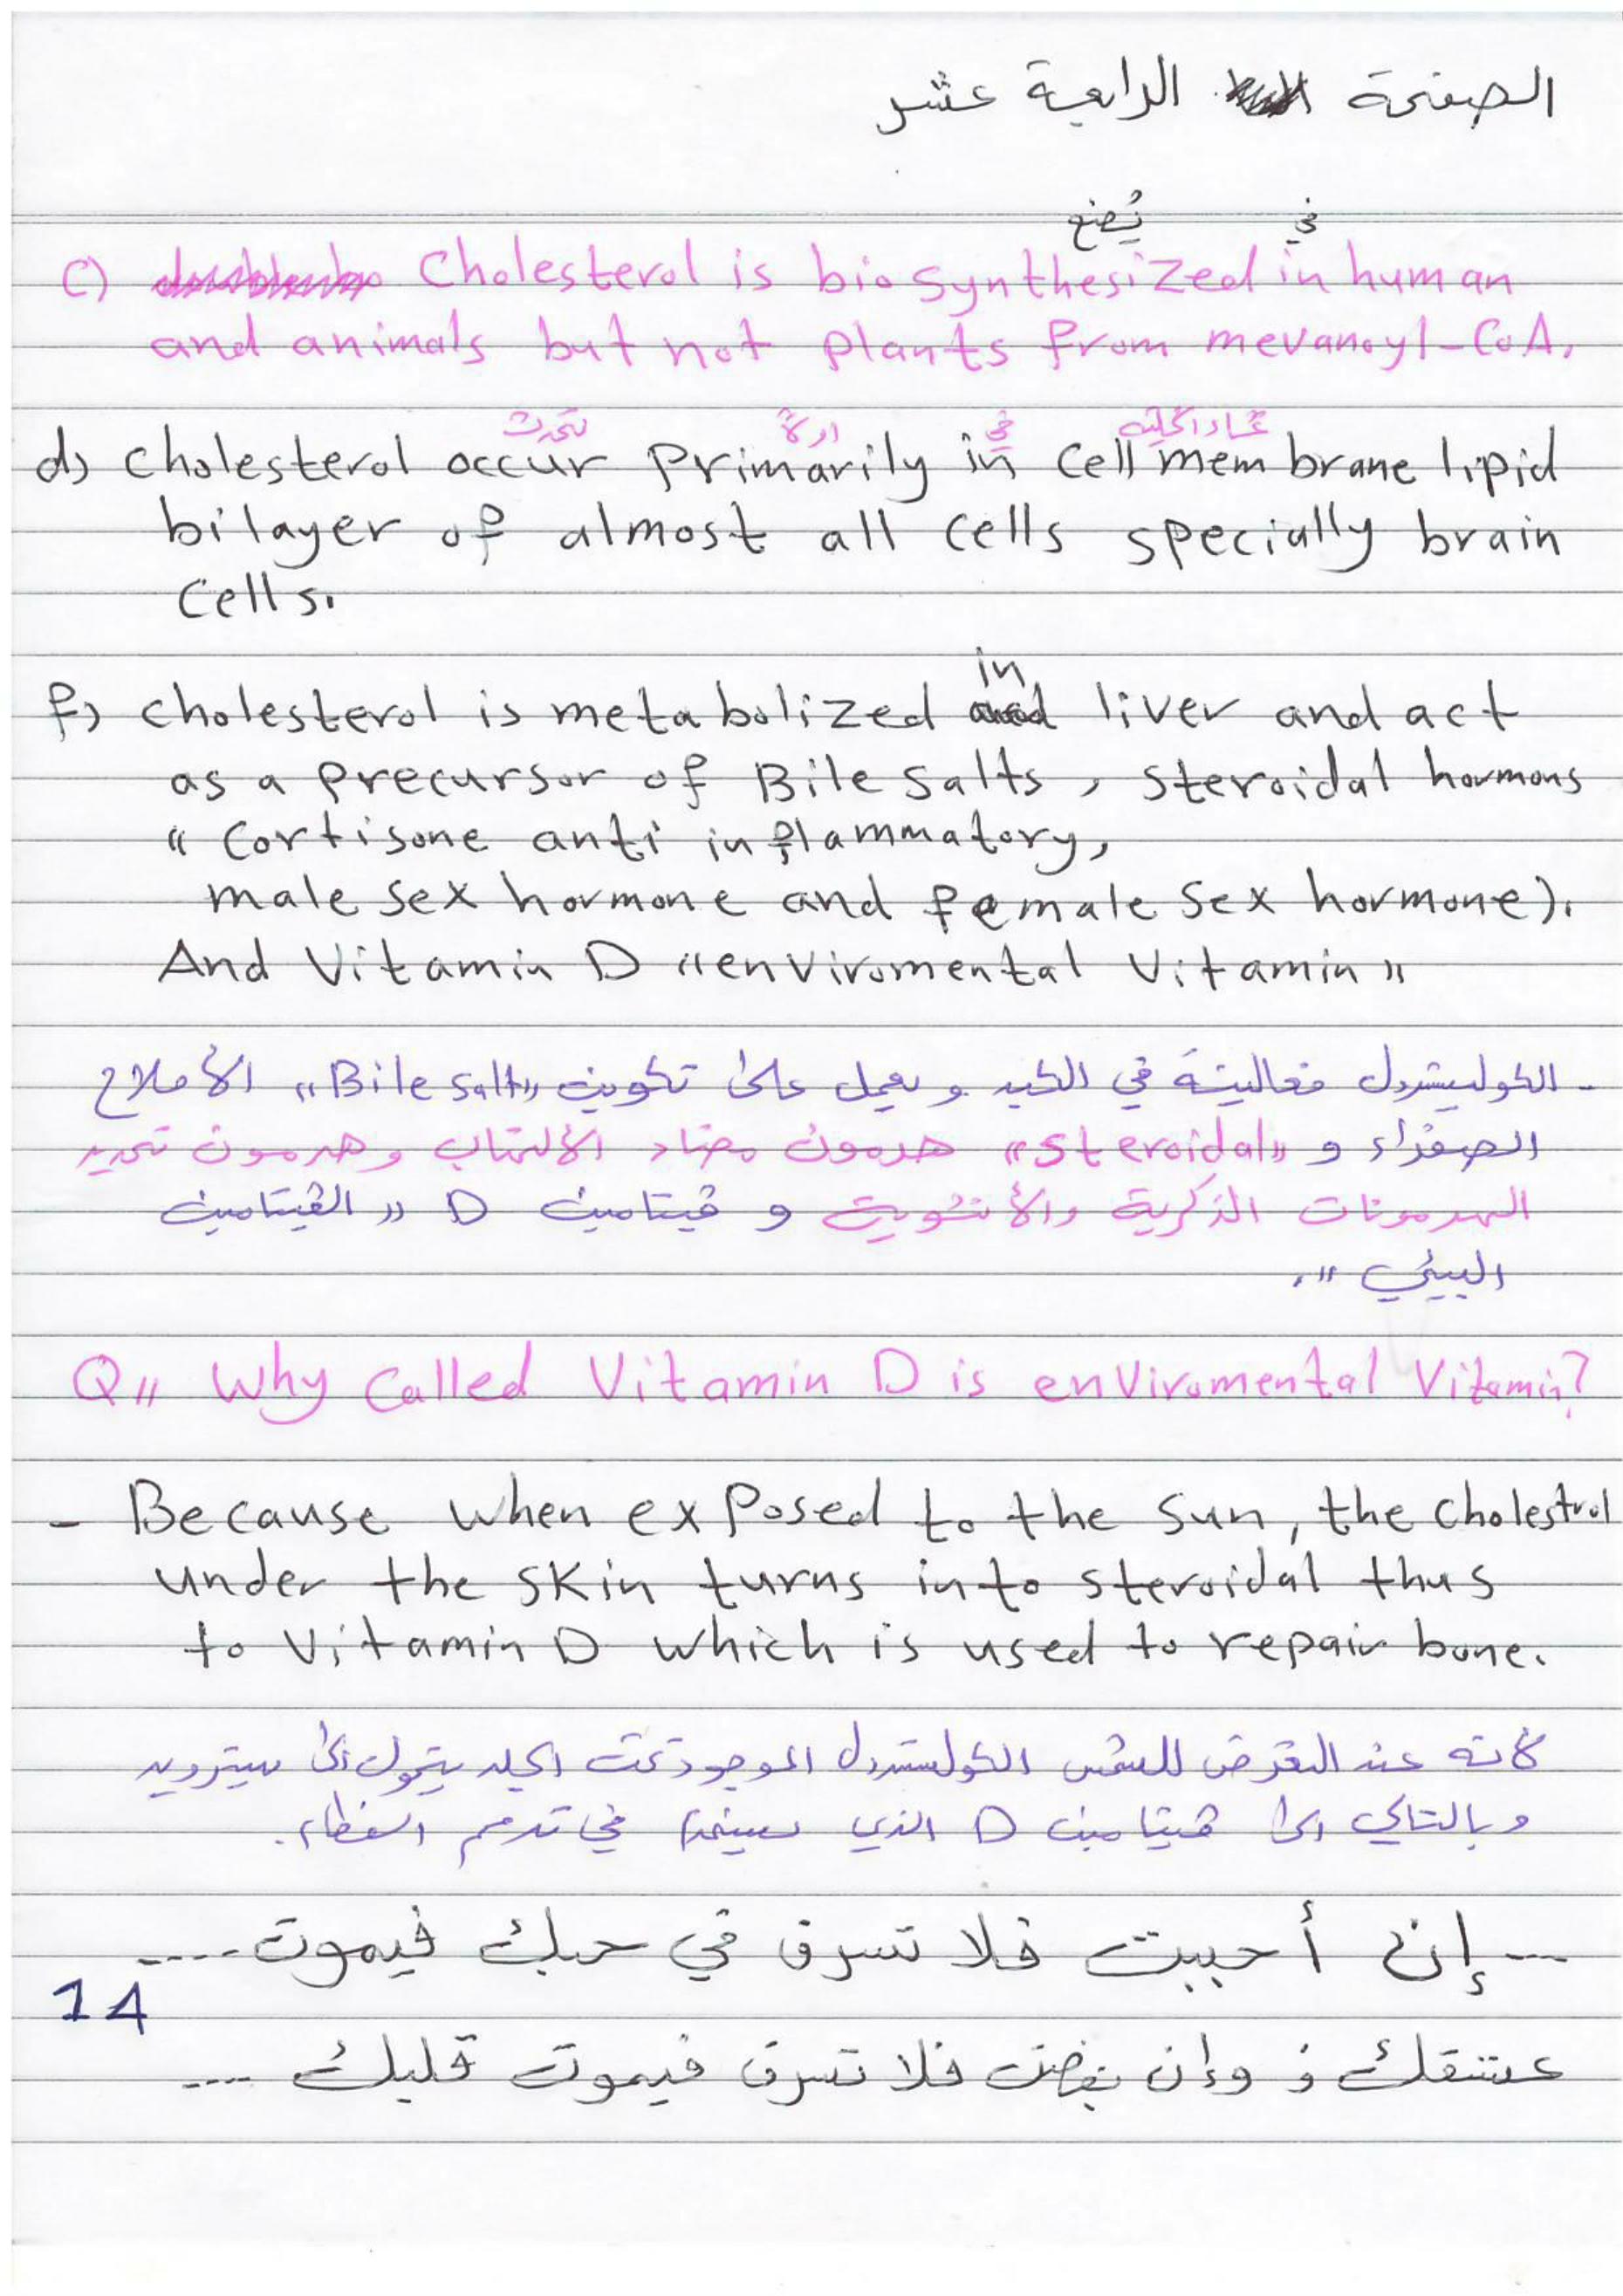 الصفحة الرابعة عشر
يُصنع في
c) Cholesterol is biosynthesized in human
and animals but not plants from mevanoyl-CoA.
تحدث اولاً في غشاء الخلية
d) cholesterol occur primarily in cell membrane lipid
bilayer of almost all cells specially brain
cells.
in
f) cholesterol is metabolized liver and act
as a precursor of Bile salts, steroidal hormons
" Cortisone anti inflammatory,
male sex hormone and female sex hormone).
And Vitamin D "enviromental Vitamin"
- الكوليسترول فعاليته في الكبد و يعمل على تكوين "Bile salt" الأملاح
الصفراء و "steroidal" هرمون مضاد الألتهاب وهرمون تحديد
الهرمونات الذكرية والأنثوية و فيتامين D " الفيتامين
البيئي ".
Q" Why called Vitamin D is enviromental Vitamin?
- Because when exposed to the sun, the cholestrol
under the skin turns into steroidal thus
to Vitamin D which is used to repair bone.
لأنه عند التعرض للشمس الكولسترول الموجود تحت الجلد يتحول الى ستيرويد
وبالتالي الى فيتامين D الذي في ترميم العظام.
... إن أحببت فلا تسرف في حبك فيموت ....
14
عشقك وإن بغضت فلا تسرف فيموت قلبك ....